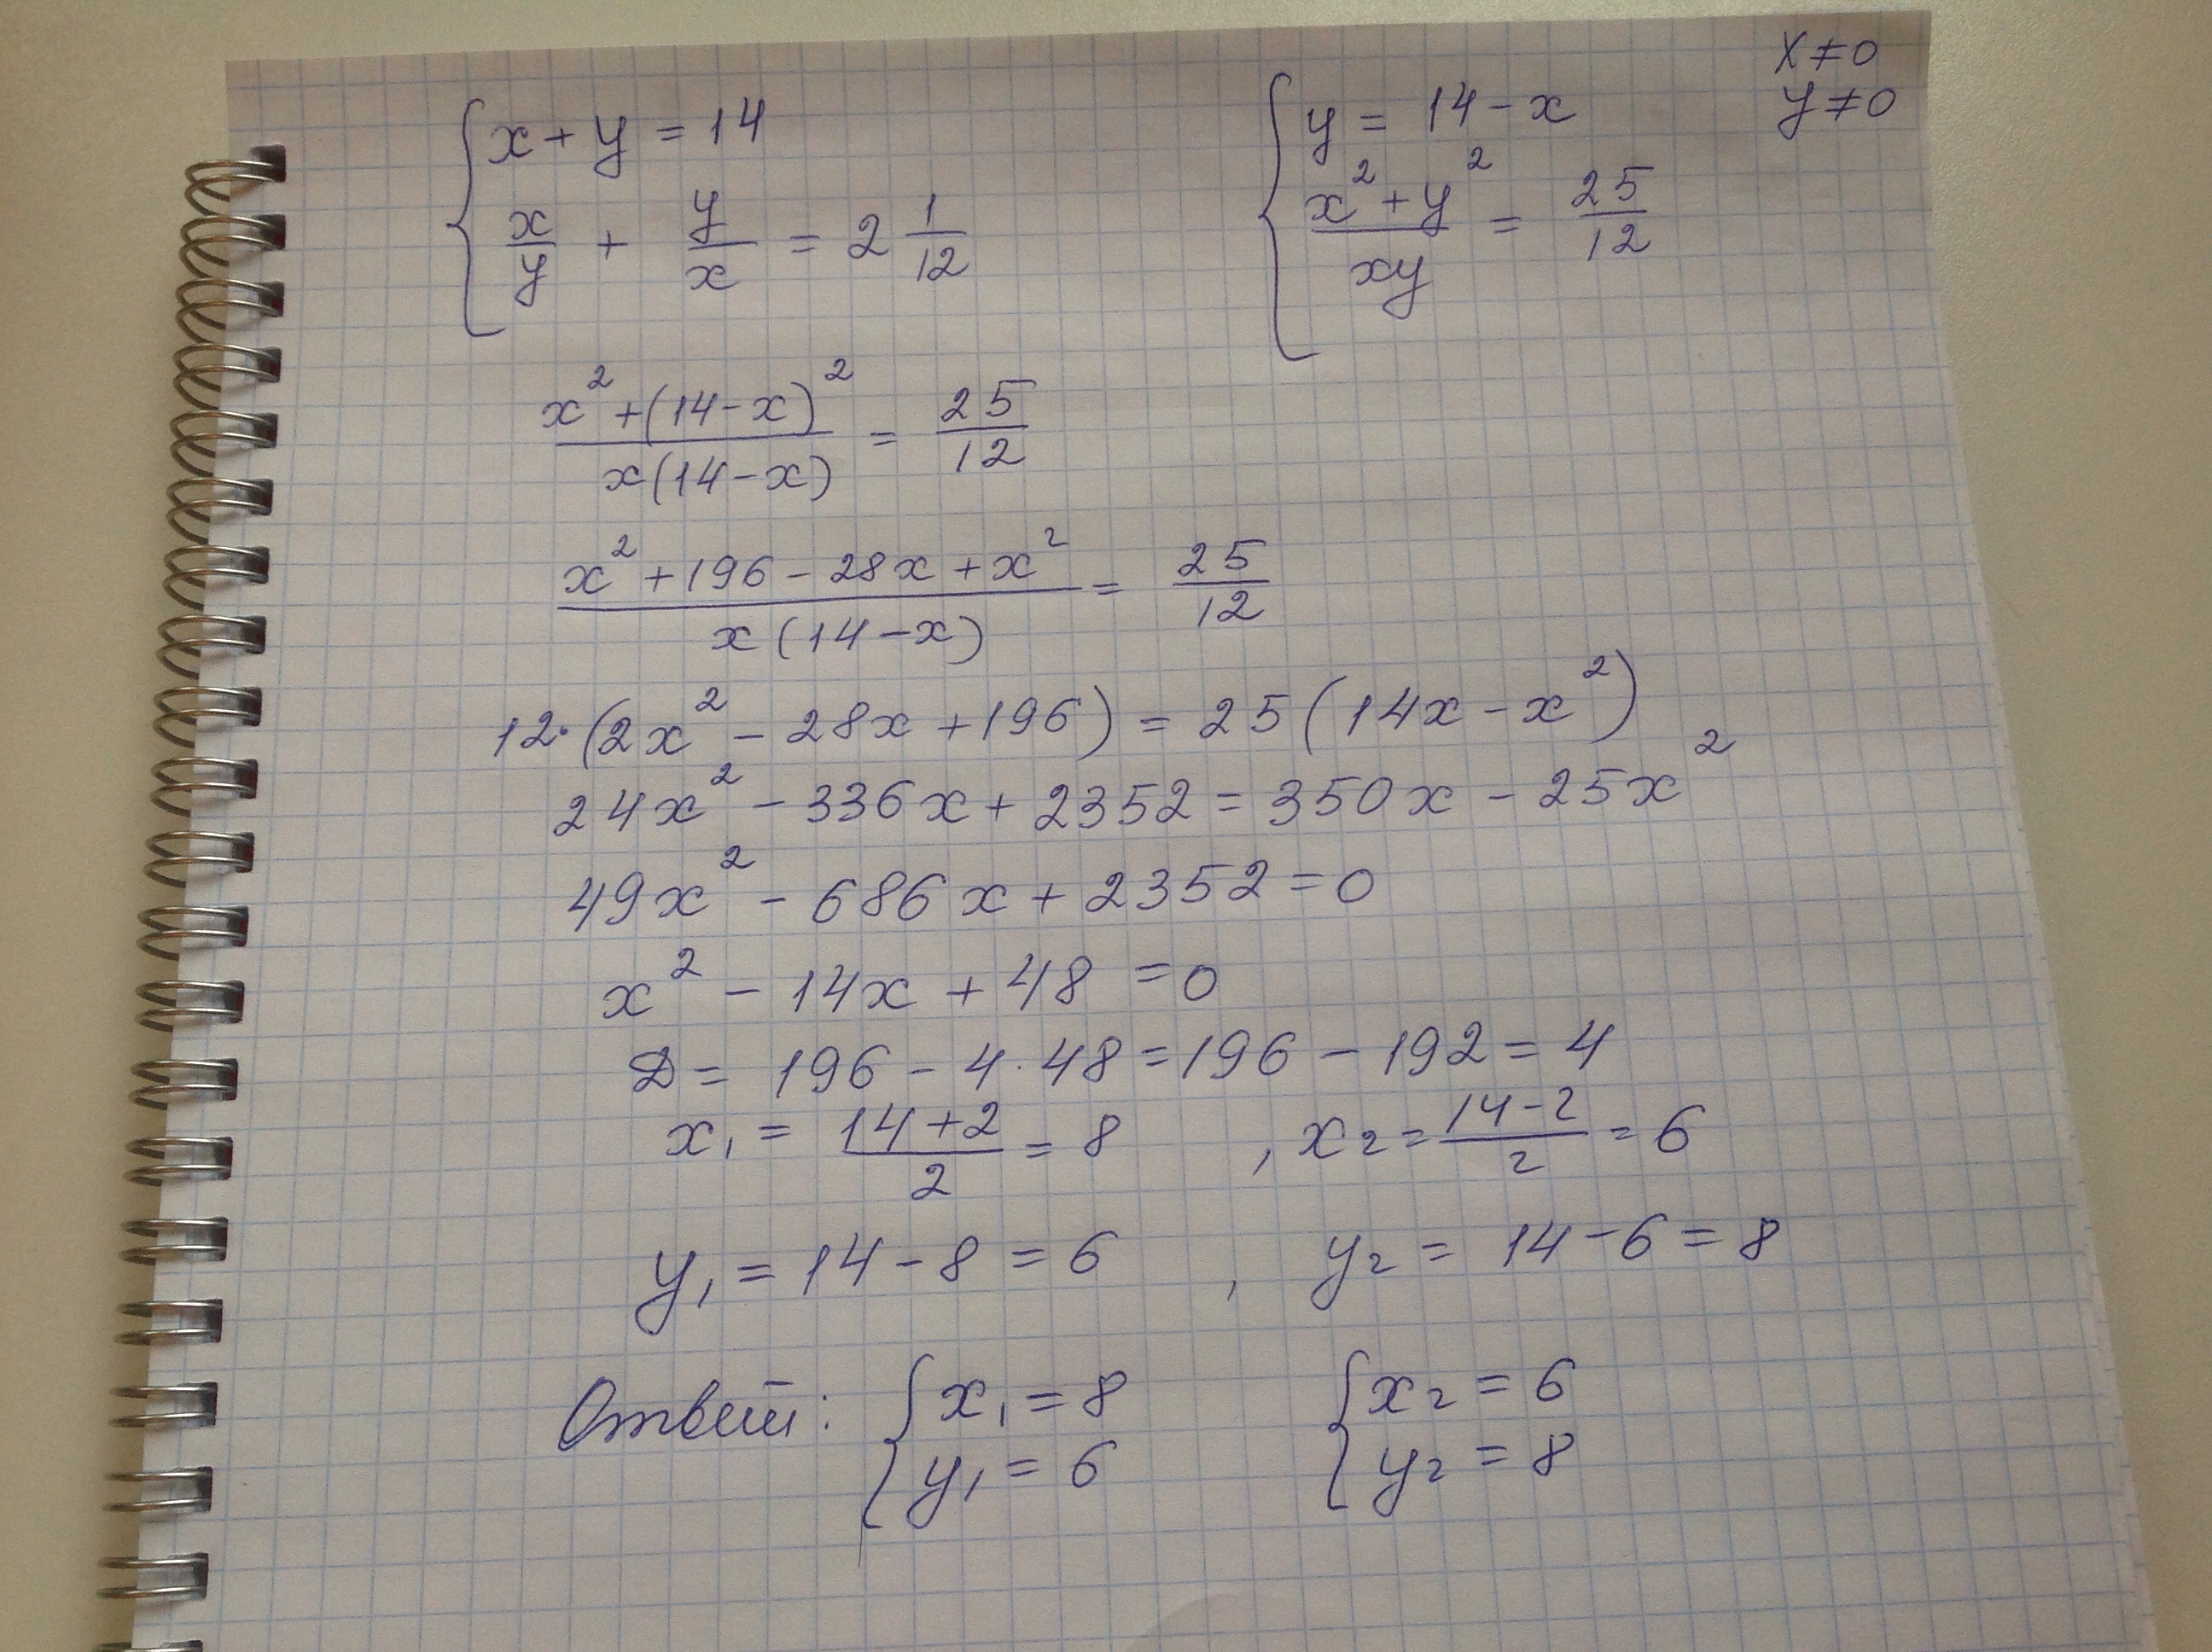 { x + y = 14
x/y + y/x = 2 1/12
{ y = 14 - x
x² + y² / xy = 25/12
x ≠ 0
y ≠ 0
x² + (14 - x)² / x(14 - x) = 25/12
x² + 196 - 28x + x² / x(14 - x) = 25/12
12·(2x² - 28x + 196) = 25(14x - x²)
24x² - 336x + 2352 = 350x - 25x²
49x² - 686x + 2352 = 0
x² - 14x + 48 = 0
D = 196 - 4·48 = 196 - 192 = 4
x₁ = 14 + 2 / 2 = 8 , x₂ = 14 - 2 / 2 = 6
y₁ = 14 - 8 = 6 , y₂ = 14 - 6 = 8
Ответ: { x₁ = 8 { x₂ = 6
y₁ = 6 y₂ = 8